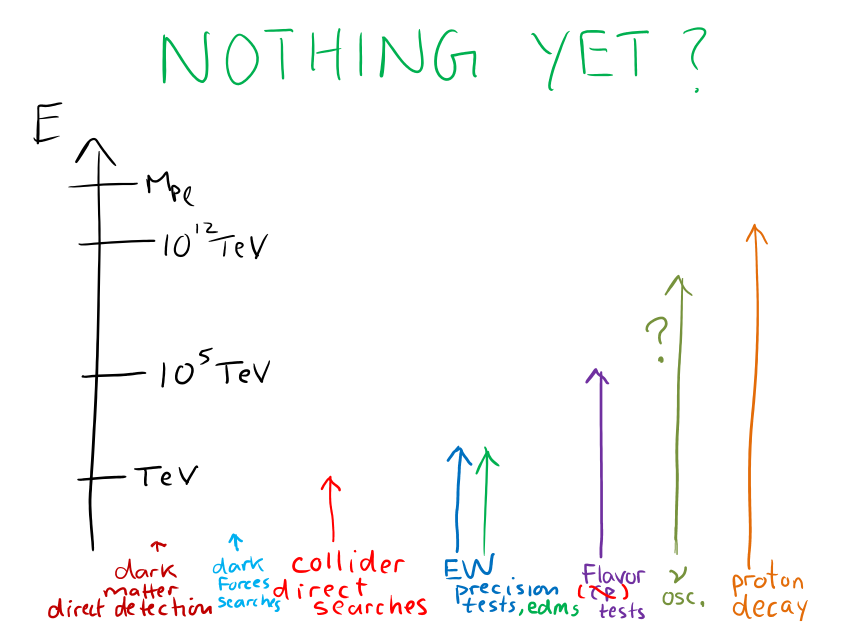 NOTHING YET ?
E
Mpl
10¹² TeV
10⁵ TeV
TeV
?
dark
matter
direct detection
dark
Forces
searches
collider
direct
searches
EW
precision
tests, edms
Flavor
(CP)
tests
ν
osc.
proton
decay